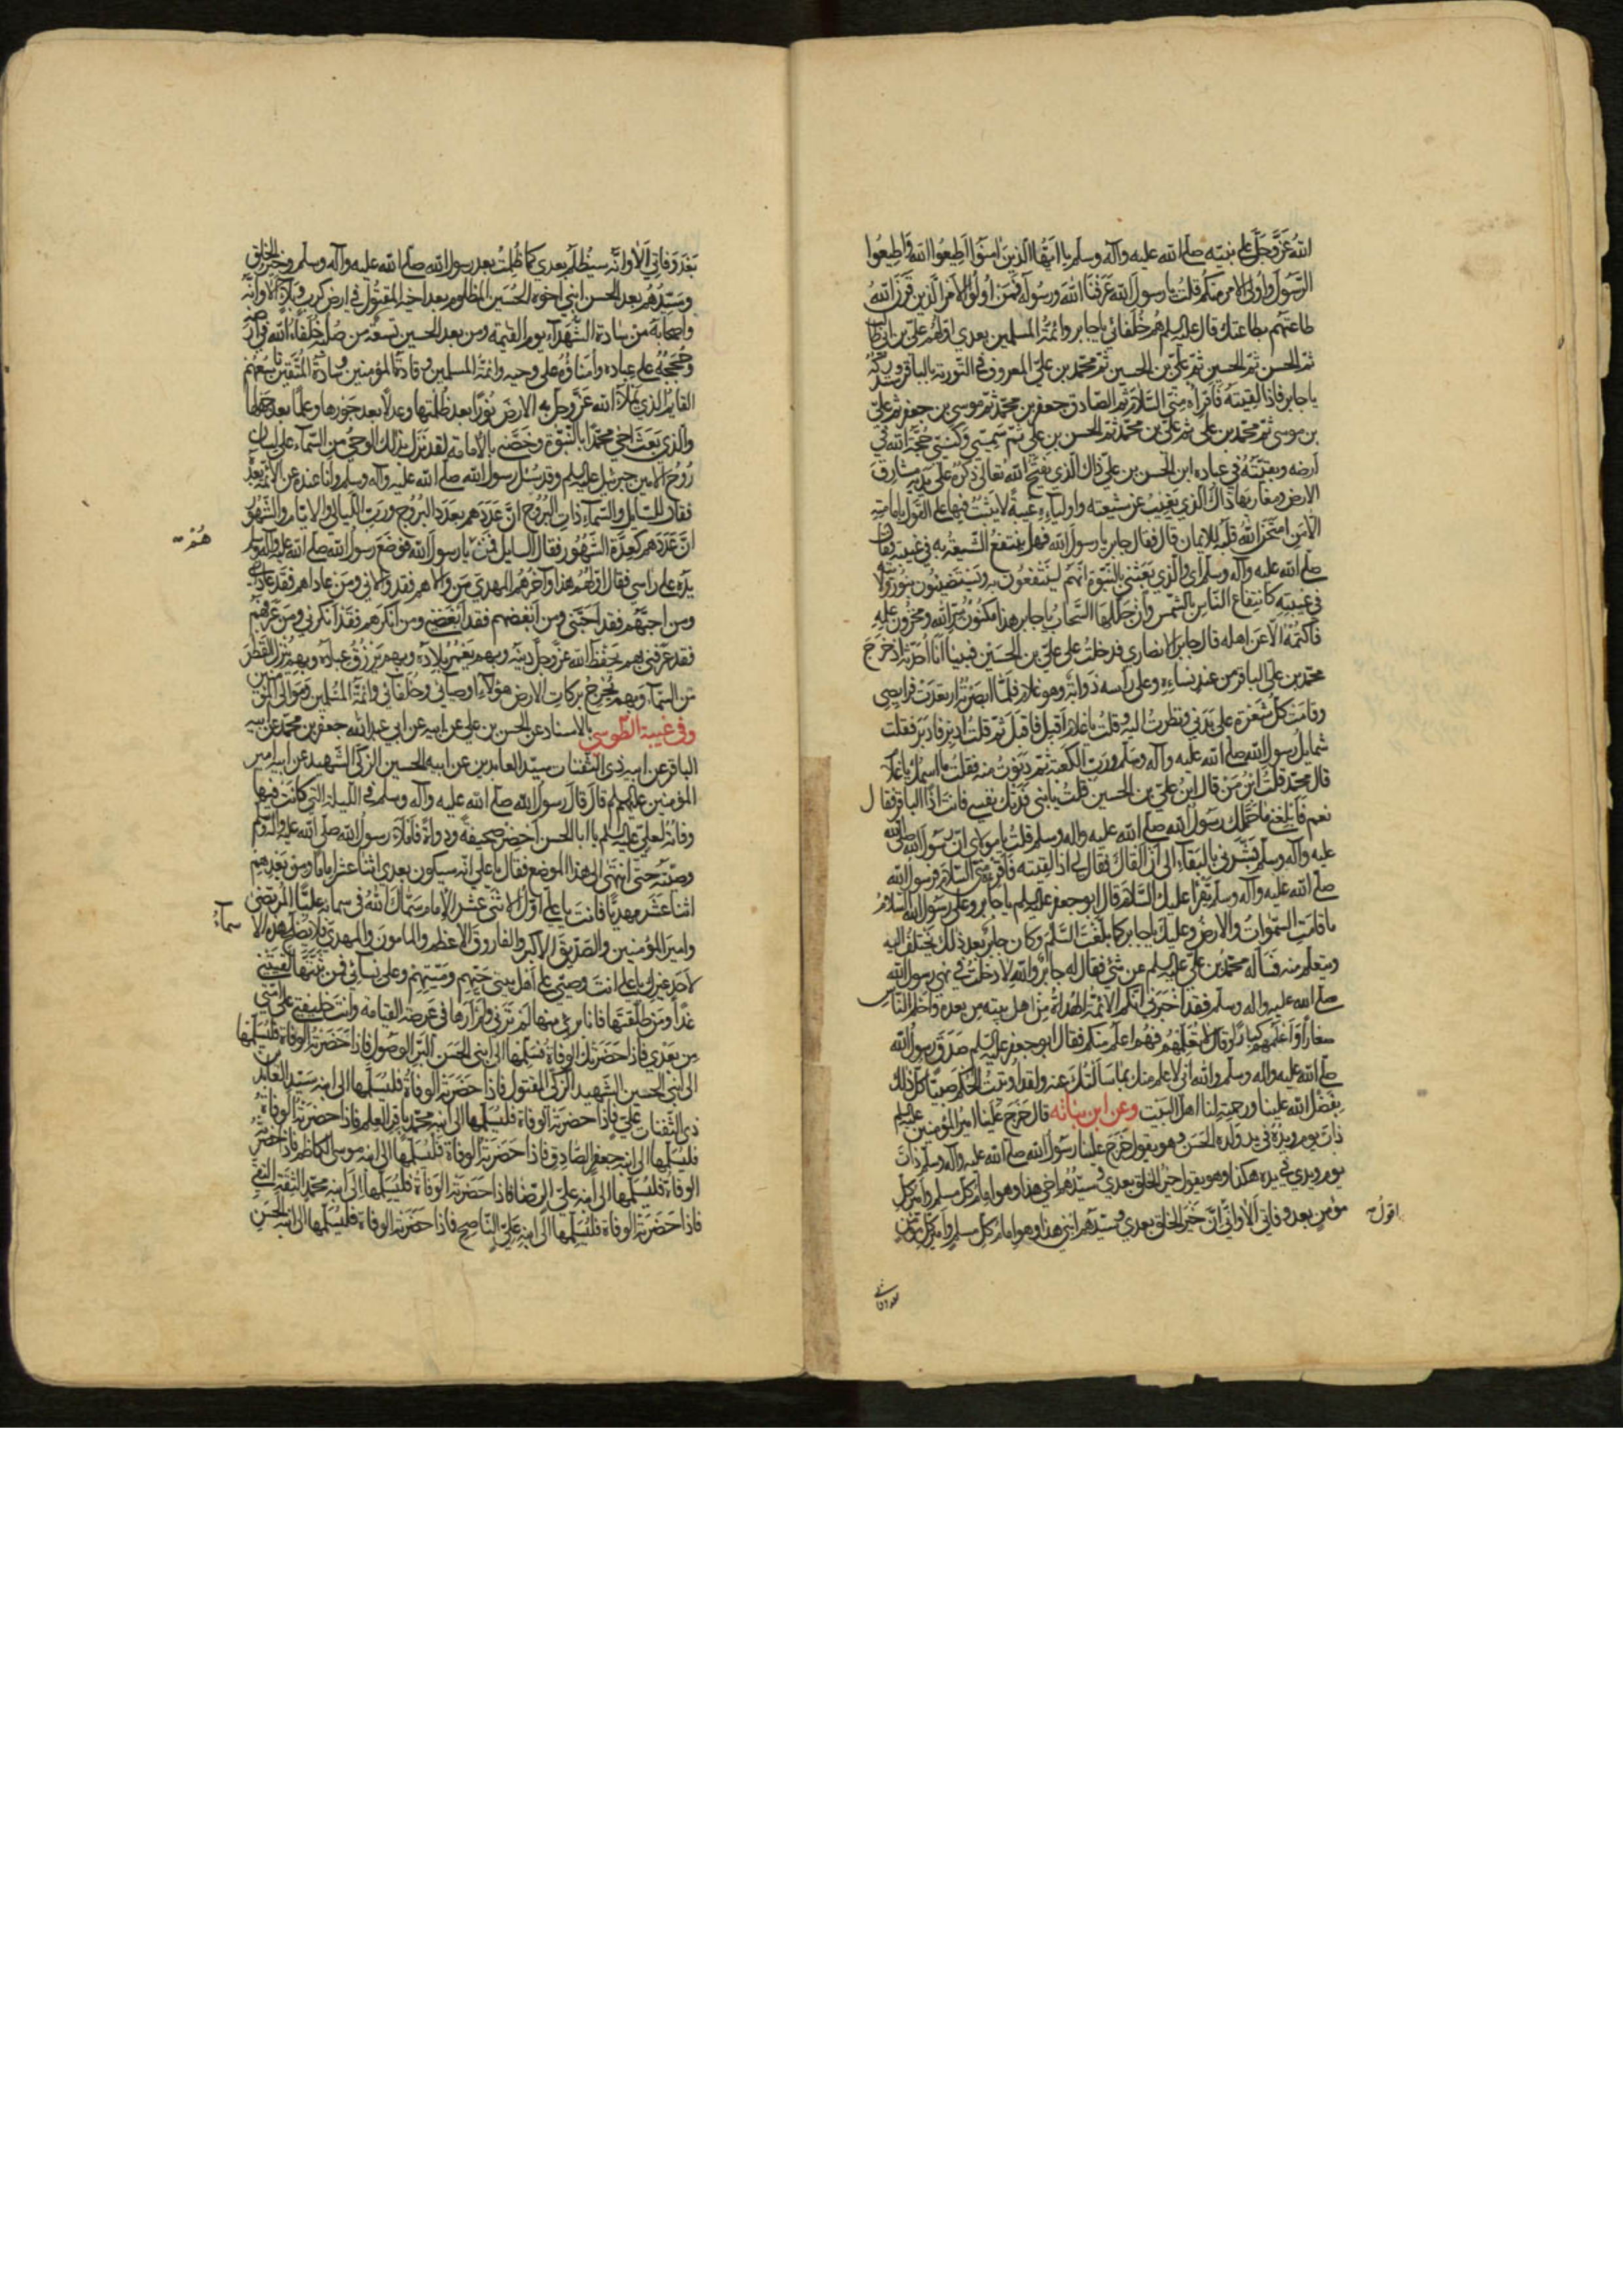 الله عز وجل على نبيه صلى الله عليه وآله وسلم يا ايها الذين امنوا اطيعوا الله واطيعوا
الرسول واولى الامر منكم قلت يا رسول الله عرفنا الله ورسوله فمن اولوا الامر الذين قرن الله
طاعتهم بطاعتك قال عليه السلم هم خلفائي يا جابر وائمة المسلمين بعدي اولهم علي بن ابي طالب
ثم الحسن ثم الحسين ثم علي بن الحسين ثم محمد بن علي المعروف في التورية بالباقر وستدركه
يا جابر فاذا لقيته فاقراه مني السلام ثم الصادق جعفر بن محمد ثم موسى بن جعفر ثم علي
بن موسى ثم محمد بن علي ثم علي بن محمد ثم الحسن بن علي ثم سميي وكنيي حجة الله في
ارضه وبقيته في عباده ابن الحسن بن علي ذاك الذي يفتح الله تعالى ذكره على يديه مشارق
الارض ومغاربها ذاك الذي يغيب عن شيعته واوليائه غيبة لا يثبت فيها على القول بامامته
الا من امتحن الله قلبه للايمان قال فقال جابر يا رسول الله فهل ينتفع الشيعة به في غيبته فقال
صلى الله عليه وآله وسلم اي والذي بعثني بالنبوة انهم لينتفعون به ويستضيئون بنور ولايته
في غيبته كانتفاع الناس بالشمس وان جللها السحاب يا جابر هذا مكنون سر الله ومخزون علمه
فاكتمه الا عن اهله قال جابر الانصاري فدخلت على علي بن الحسين فبينا انا احدثه اذ خرج
محمد بن علي الباقر من عند نسائه وعلى راسه ذوابة وهو غلام فلما ابصرته ارتعدت فرايصي
وقامت كل شعرة على بدني ونظرت اليه وقلت يا غلام اقبل فاقبل ثم قلت ادبر فادبر فقلت
شمايل رسول الله صلى الله عليه وآله وسلم ورب الكعبة ثم دنوت منه فقلت ما اسمك يا غلام
قال محمد قلت ابن من قال ابن علي بن الحسين قلت يا بني فدتك نفسي فانت اذا الباقر فقال
نعم فابلغني ما حملك رسول الله صلى الله عليه واله وسلم قلت يا مولاي ان رسول الله صلى الله
عليه وآله وسلم بشرني بالبقاء الى ان القاك فقال لي اذا لقيته فاقرئه مني السلام فرسول الله
صلى الله عليه وآله وسلم يقرا عليك السلام قال ابو جعفر عليه السلم يا جابر وعلى رسول الله السلام
ما قامت السموات والارض وعليك يا جابر كما بلغت السلم وكان جابر بعد ذلك يختلف اليه
ويتعلم منه فساله محمد بن علي عليه السلم عن شئ فقال له جابر والله لا دخلت في نهي رسول الله
صلى الله عليه واله وسلم فقد اخبرني انكم الائمة الهداة من اهل بيته من بعده واحلم الناس
صغارا واعلمهم كبارا وقال لا تعلمهم فهم اعلم منكم فقال ابو جعفر عليه السلم صدق رسول الله
صلى الله عليه واله وسلم والله اني لاعلم منك بما سالتك عنه ولقد اوتيت الحكم صبيا كل ذلك
بفضل الله علينا ورحمته لنا اهل البيت وعن ابن نباته قال خرج علينا امير المؤمنين عليه السلم
ذات يوم ويده في يد ولده الحسن وهو يقول خرج علينا رسول الله صلى الله عليه وآله وسلم ذات
يوم ويدي في يده هكذا وهو يقول خير الخلق بعدي وسيدهم اخي هذا وهو امام كل مسلم وامير كل
مؤمن بعد وفاتي الا واني اقول ان خير الخلق بعدي وسيدهم ابني هذا وهو امام كل مسلم وامير كل مؤمن
بعد وفاتي
بعد وفاتي الا وانه سيظلم بعدي كما ظلمت بعد رسول الله صلى الله عليه وآله وسلم وخير الخلق
وسيدهم بعد الحسن ابني اخوه الحسين المظلوم بعد اخيه المقتول في ارض كرب وبلاء الا وانه
واصحابه من سادة الشهداء يوم القيمة ومن بعد الحسين تسعة من صلبه خلفاء الله في ارضه
وحججه على عباده وامناؤه على وحيه وائمة المسلمين وقادة المؤمنين وسادة المتقين تاسعهم
القايم الذي يملأ الله عز وجل به الارض نورا بعد ظلمتها وعدلا بعد جورها وعلما بعد جهلها
والذي بعث اخي محمدا بالنبوة وخصني بالامامة لقد نزل بذلك الوحي من السماء على لسان
روح الامين جبرئيل عليه السلم وقد سئل رسول الله صلى الله عليه وآله وسلم وانا عنده عن الائمة بعده
فقال للسايل والسماء ذات البروج ان عددهم بعدد البروج ورب الليالي والايام والشهور
ان عددهم كعدة الشهور فقال السايل فمن هم يا رسول الله فوضع رسول الله صلى الله عليه وآله وسلم
يده على راسي فقال اولهم هذا وآخرهم المهدي من والاهم فقد والاني ومن عاداهم فقد عاداني
ومن احبهم فقد احبني ومن ابغضهم فقد ابغضني ومن انكرهم فقد انكرني ومن عرفهم
فقد عرفني بهم يحفظ الله عز وجل دينه وبهم يعمر بلاده وبهم يرزق عباده وبهم نزل القطر
من السماء وبهم تخرج بركات الارض هؤلاء اوصيائي وخلفائي وائمة المسلمين وموالي المؤمنين
وفي غيبة الطوسي بالاسناد عن الحسن بن علي عن ابيه عن ابي عبد الله جعفر بن محمد عن ابيه
الباقر عن ابيه ذي الثفنات سيد العابدين عن ابيه الحسين الزكي الشهيد عن ابيه امير
المؤمنين عليهم السلم قال قال رسول الله صلى الله عليه وآله وسلم في الليلة التي كانت فيها
وفاته لعلي عليه السلم يا ابا الحسن احضر صحيفة ودواة فاملاء رسول الله صلى الله عليه وآله وسلم
وصيته حتى انتهى الى هذا الموضع فقال يا علي انه سيكون بعدي اثنا عشر اماما ومن بعدهم
اثنا عشر مهديا فانت يا علي اول الاثنى عشر الامام سماك الله في سمائه عليا المرتضى
وامير المؤمنين والصديق الاكبر والفاروق الاعظم والمامون والمهدي فلا تصلح هذه الاسماء
لاحد غيرك يا علي انت وصيي على اهل بيتي حيهم وميتهم وعلى نسائي فمن ثبتها لقيتني
غدا ومن طلقتها فانا بري منها لم ترني ولم ارها في عرصة القيامة وانت خليفتي على امتي
من بعدي فاذا حضرتك الوفاة فسلمها الى ابني الحسن البر الوصول فاذا حضرته الوفاة فليسلمها
الى ابني الحسين الشهيد الزكي المقتول فاذا حضرته الوفاة فليسلمها الى ابنه سيد العابدين
ذي الثفنات علي فاذا حضرته الوفاة فليسلمها الى ابنه محمد باقر العلم فاذا حضرته الوفاة
فليسلمها الى ابنه جعفر الصادق فاذا حضرته الوفاة فليسلمها الى ابنه موسى الكاظم فاذا حضرته
الوفاة فليسلمها الى ابنه علي الرضا فاذا حضرته الوفاة فليسلمها الى ابنه محمد الثقة التقي
فاذا حضرته الوفاة فليسلمها الى ابنه علي الناصح فاذا حضرته الوفاة فليسلمها الى ابنه الحسن